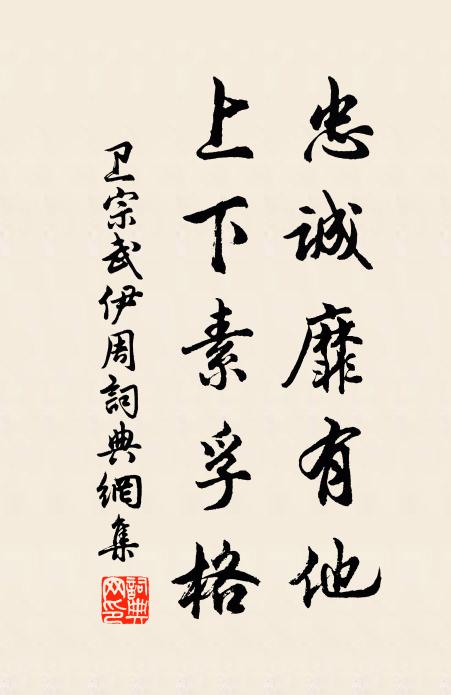 忠誠靡有他
上下素孚格
卫宗武伊周詞典網集
詞典網印